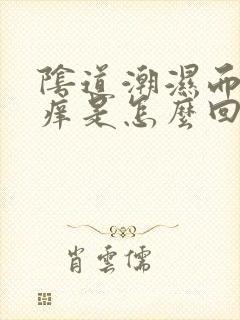 陰道潮濕而
痒是怎麼回
肖雲儒